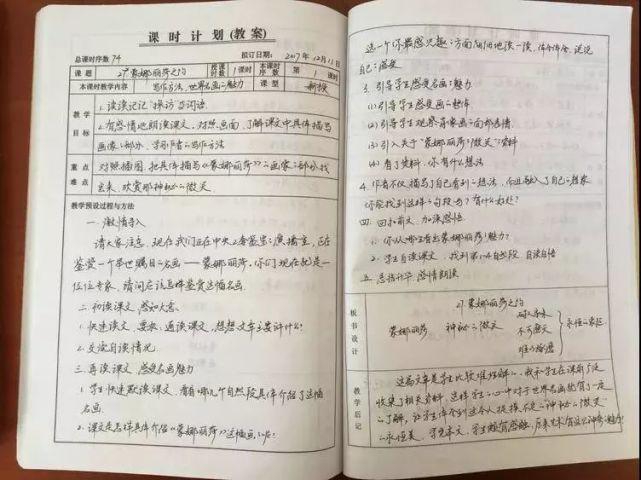 课时计划(教案)
总课时序数 74 拟订日期：2017年12月11日
课题 27*蒙娜丽莎之约 授课时数 1课时 本课时序数 第1课时
本课时教学内容 写作方法，世界名画的魅力 课型 新授
教学目标
1. 读读记记“探访”等词语
2. 有感情地朗读课文，对照画面，了解课文中具体描写
画像的部分，学习作者的写作方法
重点难点
对照插图，把具体描写《蒙娜丽莎》画像的部分找
出来，欣赏那神秘的微笑。
教学预设过程与方法
一. 激情导入
请大家注意，现在我们正在中央2套鉴宝的演播室，正在
鉴赏一个举世瞩目的名画——蒙娜丽莎，你们现在就是一
位位专家，请问应该怎样鉴赏这幅名画。
二. 初读课文，感知大意。
1. 快速读文，要求：通读课文，想想文章主要讲什么？
2. 交流自读情况
三. 再读课文，感受名画魅力
1. 学生快速默读课文，看有哪几个自然段具体介绍了这幅
名画。
2. 课文是怎样具体介绍《蒙娜丽莎》这幅画的？
选一个你最感兴趣的方面细细地读一读，体会体会，说说
自己的感受
3. 引导学生感受名画的魅力
(1) 引导学生感受画的整体
(2) 引导学生观察肖像画的面部表情
(3) 引入关于“蒙娜丽莎”微笑的资料
(4) 看了资料，你有什么想法
4. 作者不仅描写了自己看到的想法，而且融入了自己的想象
你能找到这样的句段吗？有什么好处？
四. 回扣前文，加深感悟
1. 你从哪里看出蒙娜丽莎的魅力？
2. 学生自读课文，找到第1-4自然段，自读自悟
五. 总结升华，感情朗读
板书设计
27. 蒙娜丽莎之约
蒙娜丽莎 神秘的微笑
耐人寻味
不可磨灭
难以捉摸
永恒的象征
教学后记
这篇文章是学生比较难理解的，我和学生在课前广泛
收集了相关资料，这样学生心中对于世界名画就有了一定
的了解，让学生体会到这令人捉摸不定的“神秘的微笑”